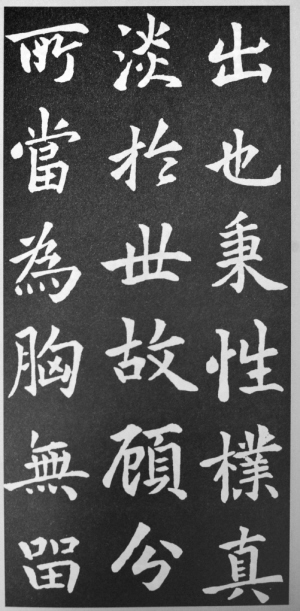 出也秉性樸真
淡於世故顧分
所當為胸無留